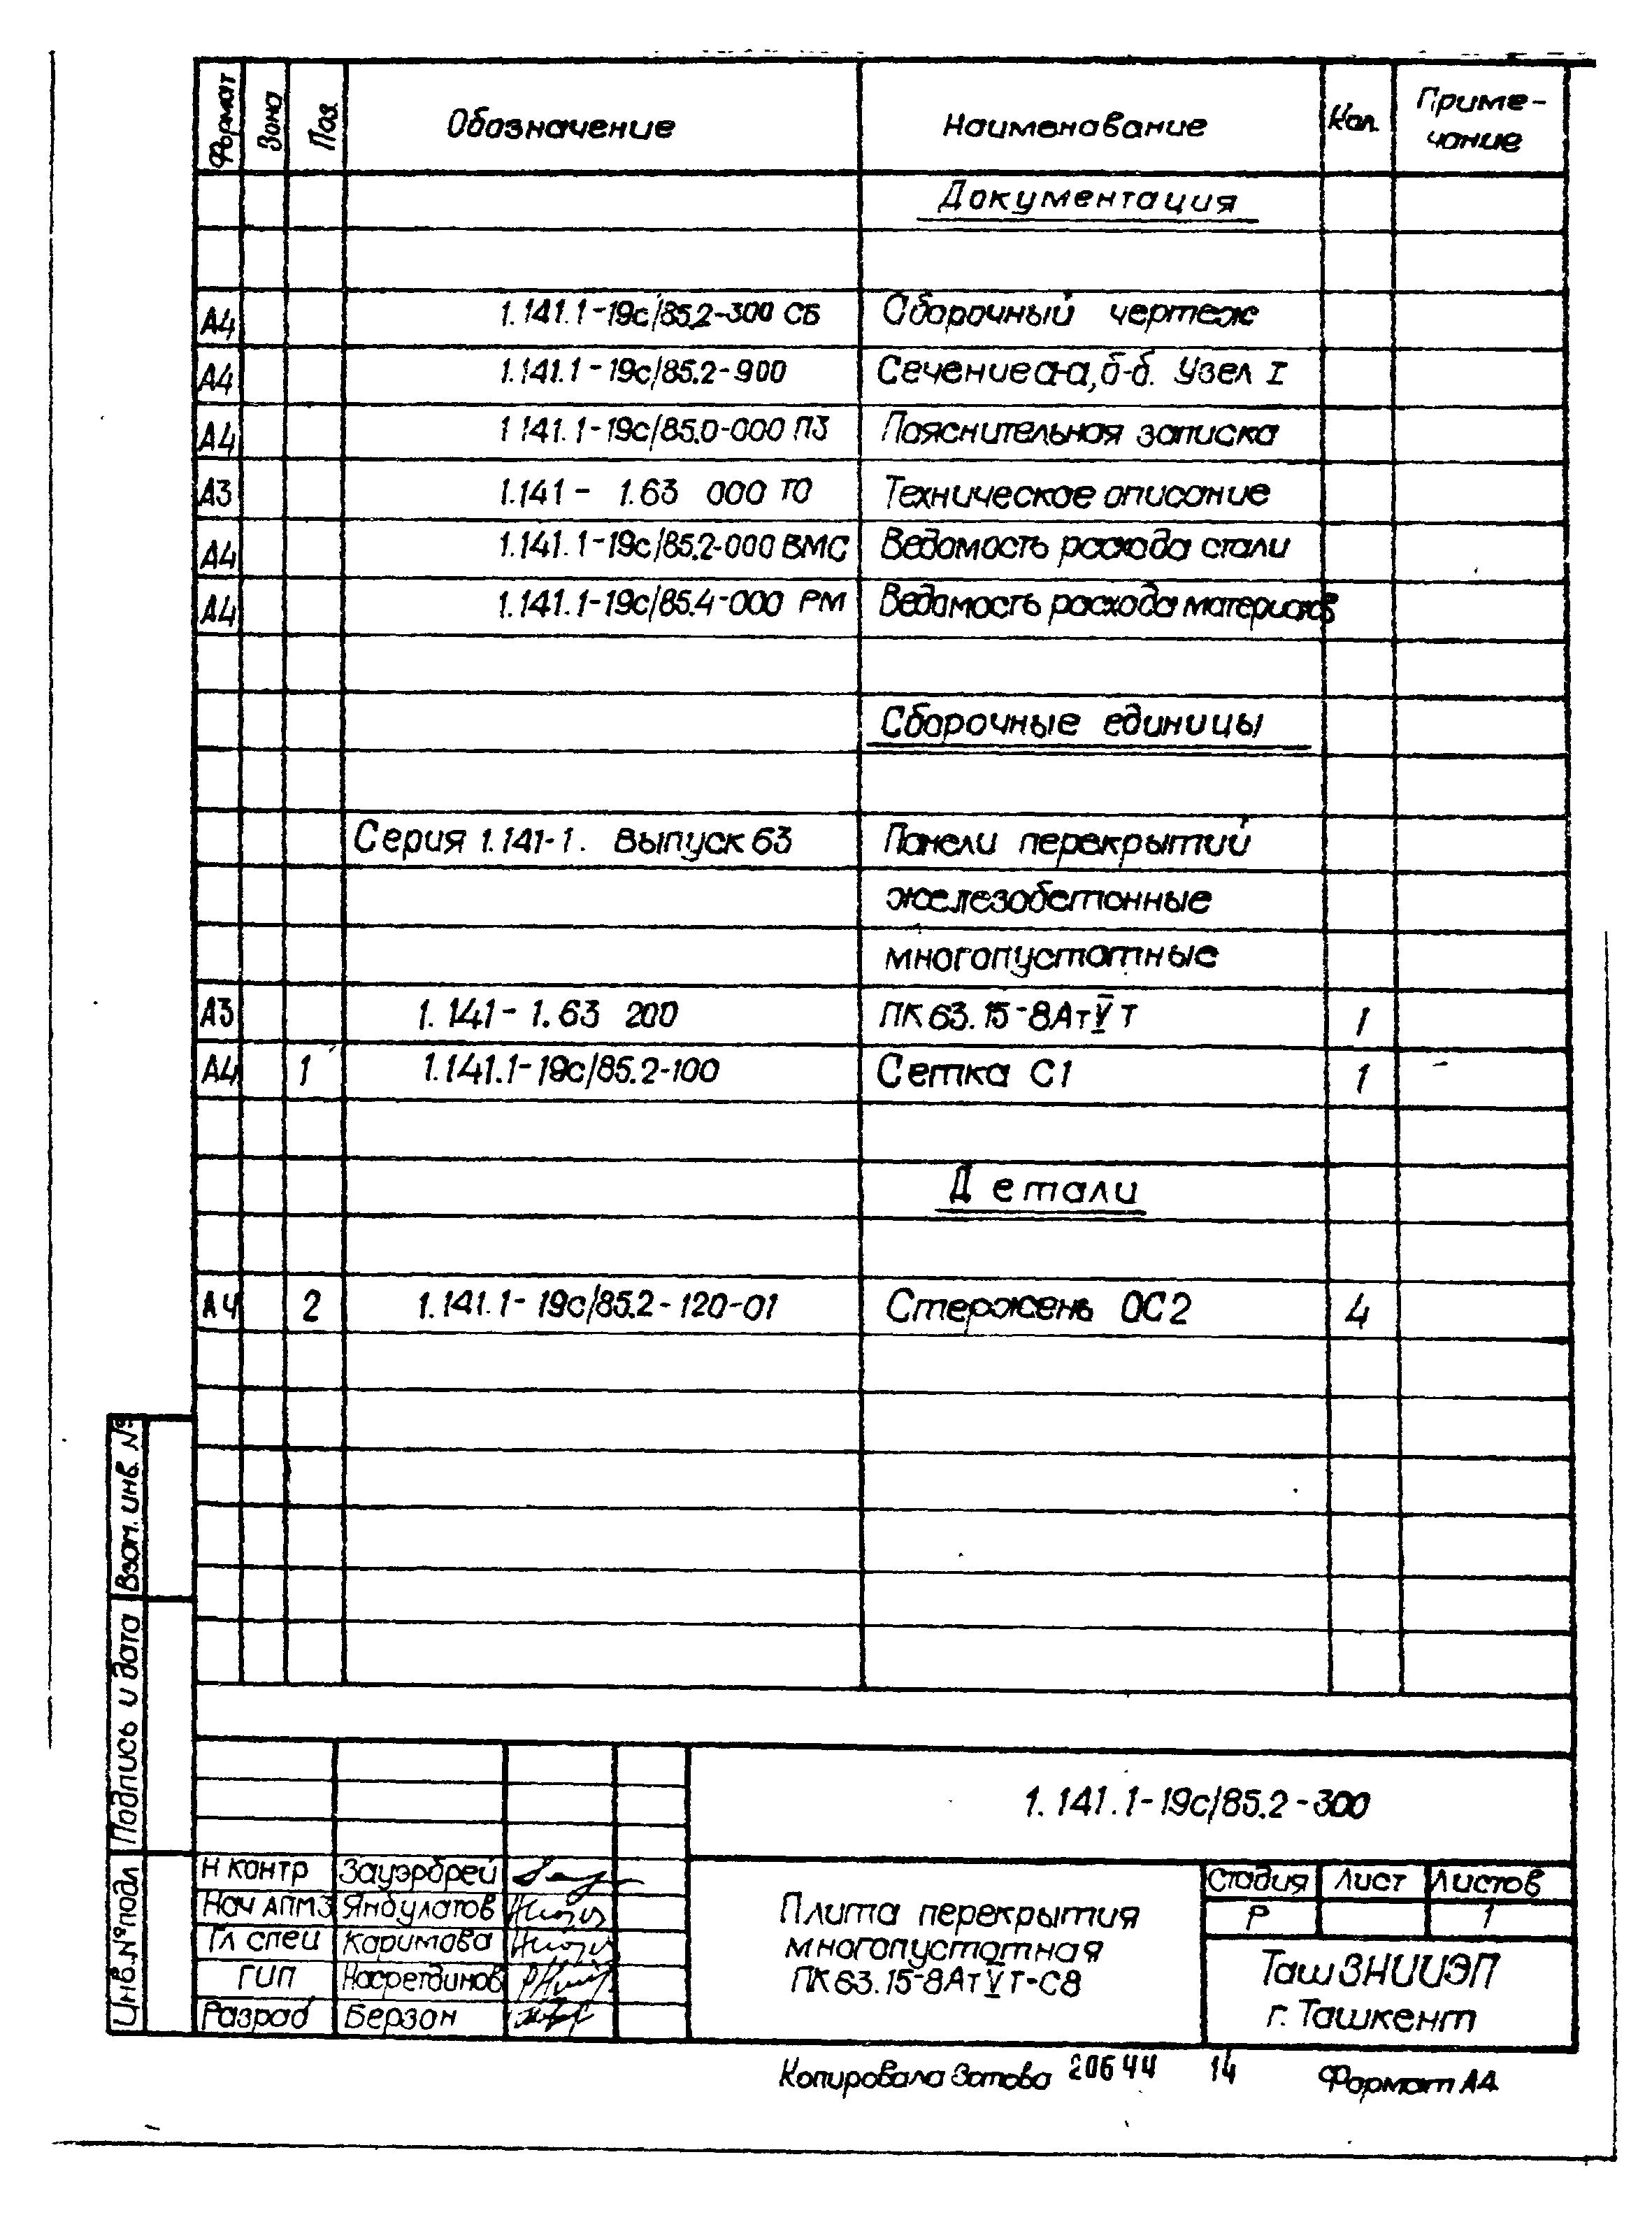 Формат Зона Поз. Обозначение Наименование Кол. Приме-
чание
Документация
А4 1.141.1-19с/85.2-300 СБ Сборочный чертеж
А4 1.141.1-19с/85.2-900 Сечение а-а, б-б. Узел I
А4 1.141.1-19с/85.0-000 ПЗ Пояснительная записка
А3 1.141- 1.63 000 ТО Техническое описание
А4 1.141.1-19с/85.2-000 ВМС Ведомость расхода стали
А4 1.141.1-19с/85.4-000 РМ Ведомость расхода материалов
Сборочные единицы
Серия 1.141-1. Выпуск 63 Панели перекрытий
железобетонные
многопустотные
А3 1.141-1.63 200 ПК63.15-8АтVТ 1
А4 1 1.141.1-19с/85.2-100 Сетка С1 1
Детали
А4 2 1.141.1-19с/85.2-120-01 Стержень ОС2 4
Взам. инв. №
Подпись и дата
Инв. № подл
1.141.1-19с/85.2-300
Н контр Зауэрбрей
Нач АПМ3 Яндулатов
Гл спец Каримова
ГИП Насретдинов
Разраб Берзон
Плита перекрытия
многопустотная
ПК63.15-8АтVТ-С8
Стадия Лист Листов
Р 1
ТашЗНИИЭП
г. Ташкент
Копировала 20644 14 Формат А4